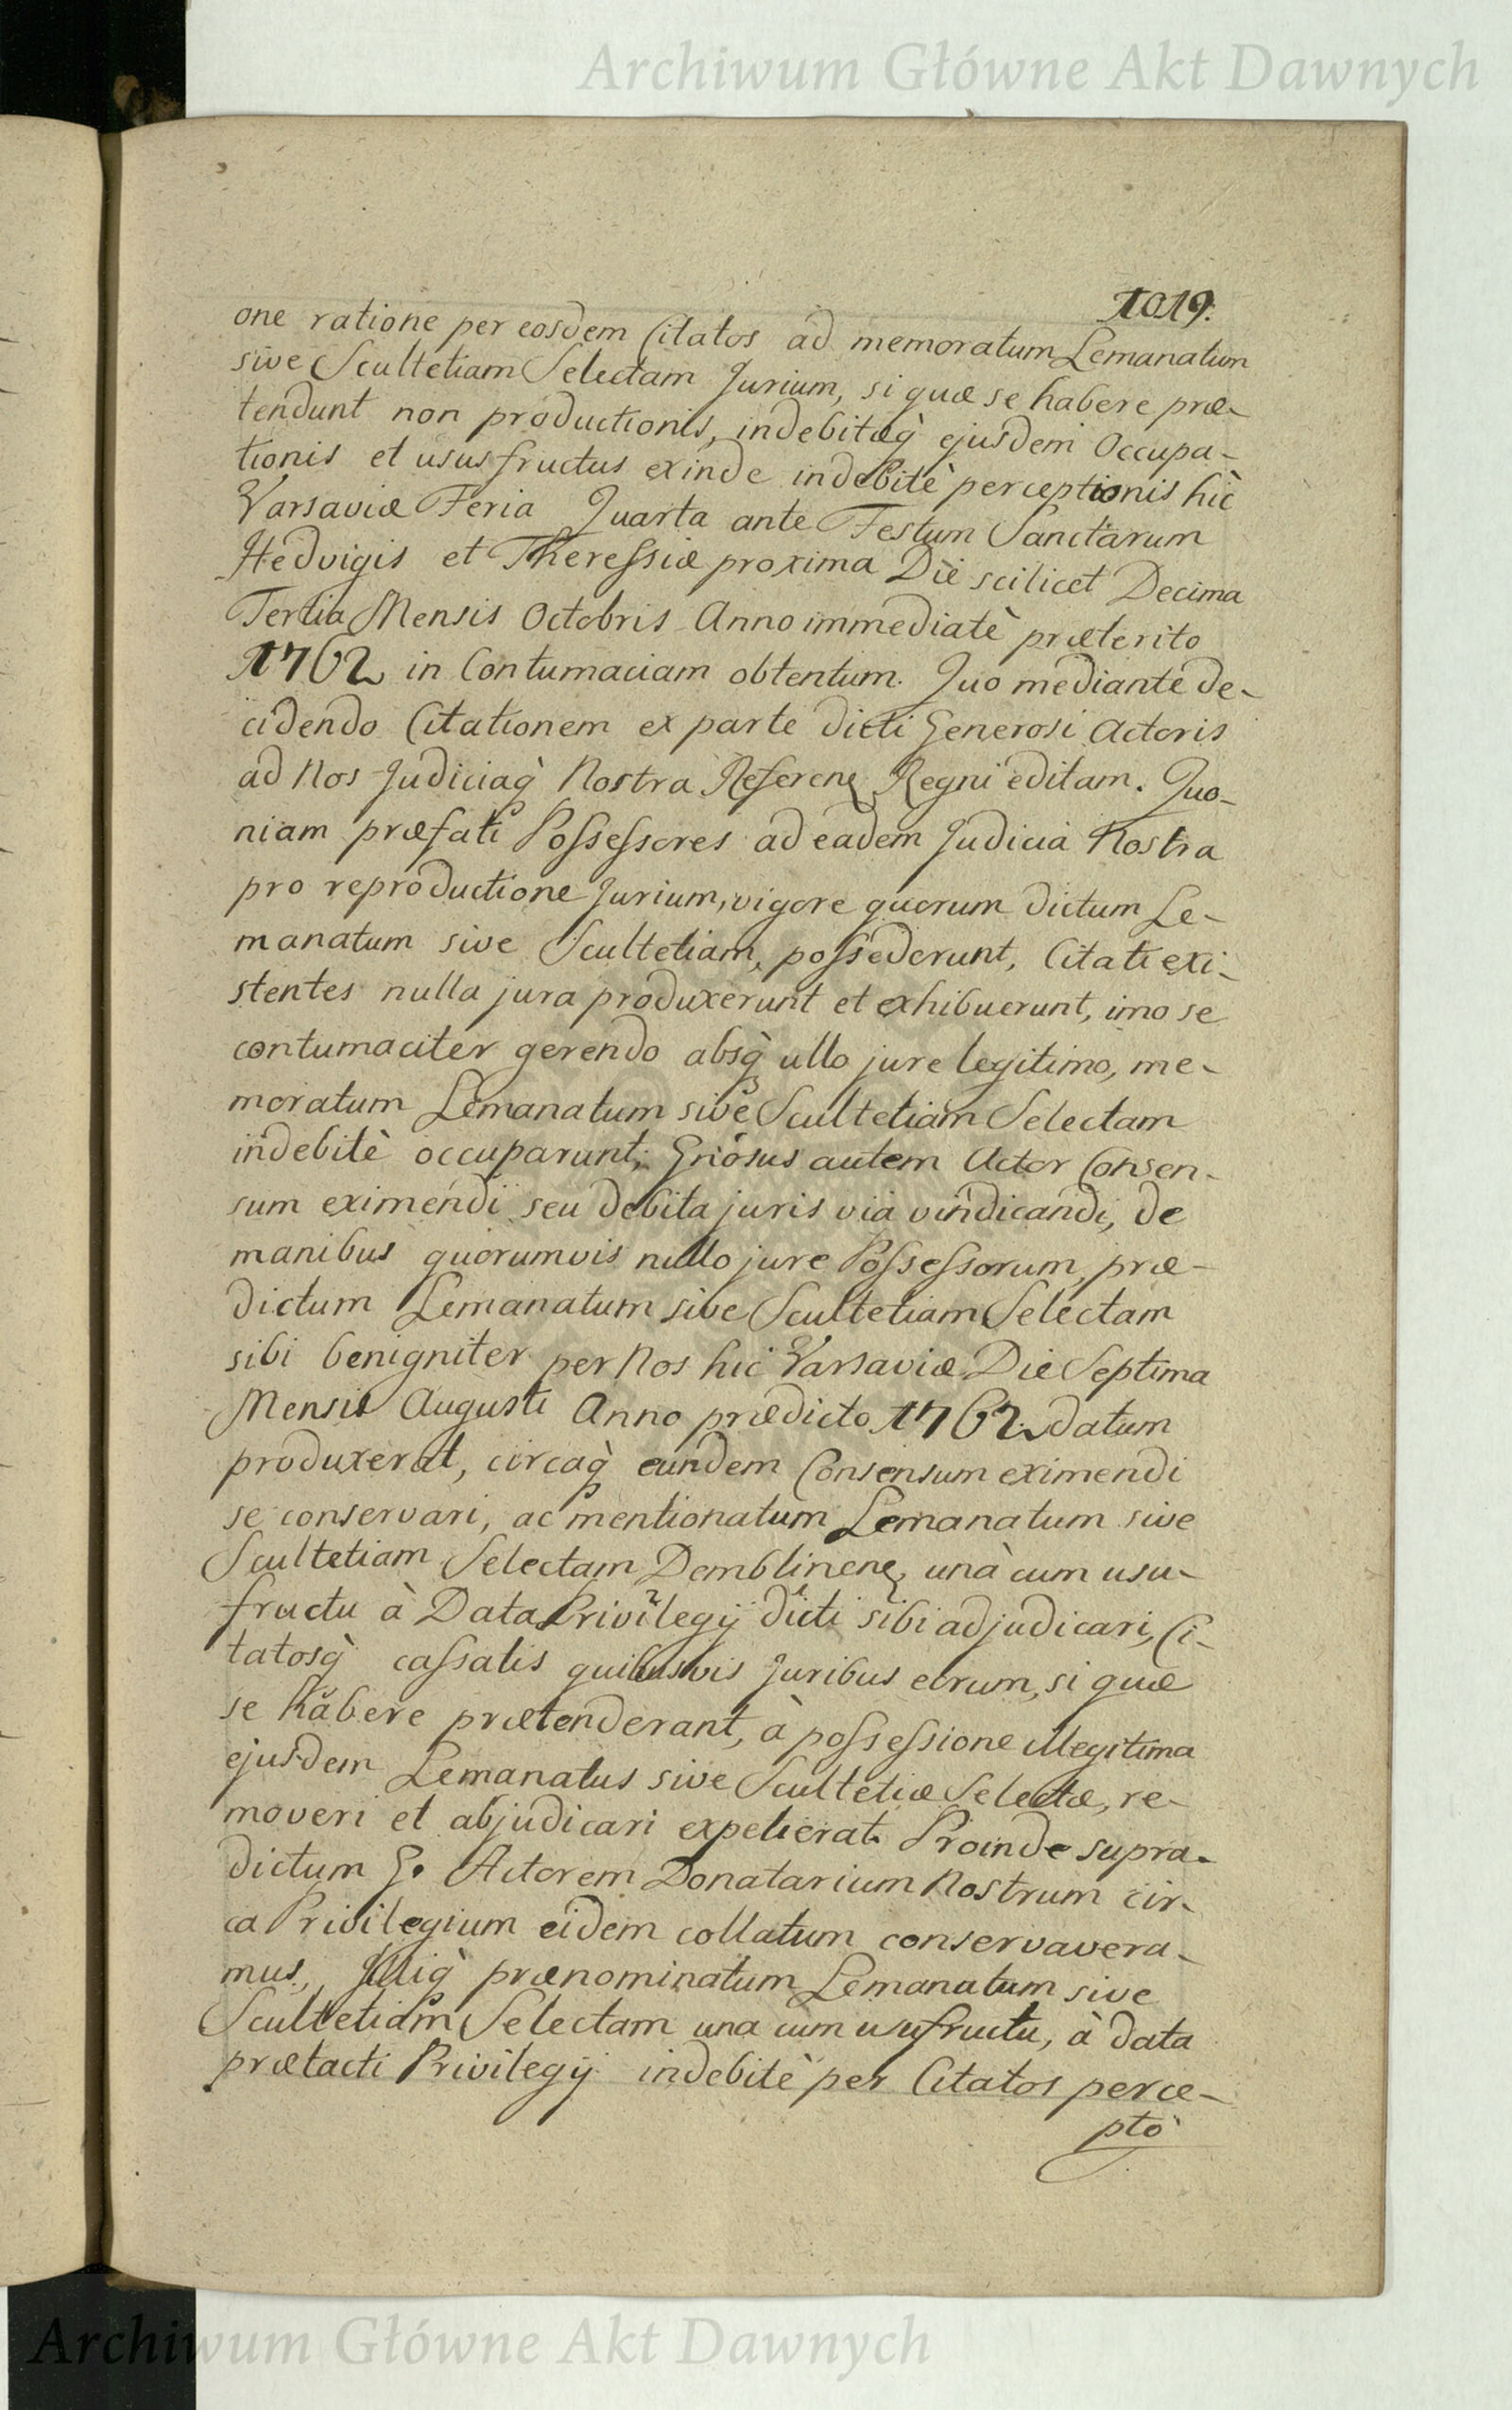 Archiwum Główne Akt Dawnych
1019.
one ratione per eosdem Citatos ad memoratum Lemanatum
sive Scultetiam Selectam Jurium, si quæ se habere præ-
tendunt non productionis, indebitæq̀ ejusdem Occupa-
tionis et ususfructus exinde indebitè perceptionis hìc
Varsaviæ Feria Quarta ante Festum Sanctarum
Hedvigis et Theressiæ proxima Die scilicet Decima
Tertia Mensis Octobris Anno immediatè præterito
1762 in Contumaciam obtentum. Quo mediante de-
cidendo Citationem ex parte dicti Generosi Actoris
ad Nos Judiciaq̀ Nostra Referenę Regni editam. Quo-
niam præfati Possessores ad eadem Judicia Nostra
pro reproductione Jurium, vigore quorum dictum Le-
manatum sive Scultetiam, possederunt, Citati exi-
stentes nulla jura produxerunt et exhibuerunt, imo se
contumaciter gerendo absq̀ ullo jure legitimo, me-
moratum Lemanatum sive Scultetiam Selectam
indebitè occuparunt; Gnosus autem Actor Consen-
sum eximendi seu debita juris via vindicandi, de
manibus quorumvis nullo jure Possessorum, præ-
dictum Lemanatum sive Scultetiam Selectam
sibi benigniter per Nos hic Varsaviæ Die Septima
Mensis Augusti Anno prædicto 1762. datum
produxerat, circaq̀ eundem Consensum eximendi
se conservari, ac mentionatum Lemanatum sive
Scultetiam Selectam Demblinenę, unà cum usu-
fructu à Data Privilegij dicti sibi adjudicari, Ci-
tatosq̀ cassatis quibusvis Juribus eorum, si quæ
se habere prætenderant, à possessione illegitima
ejusdem Lemanatus sive Scultetiæ Selectæ, re-
moveri et abjudicari expetierat. Proinde supra-
dictum G. Actorem Donatarium Nostrum cir-
ca Privilegium eidem collatum conservavera-
mus, Illiq̀ prænominatum Lemanatum sive
Scultetiam Selectam una cum usufructu, à data
prætacti Privilegij indebitè per Citatos perce-
pto
Archiwum Główne Akt Dawnych